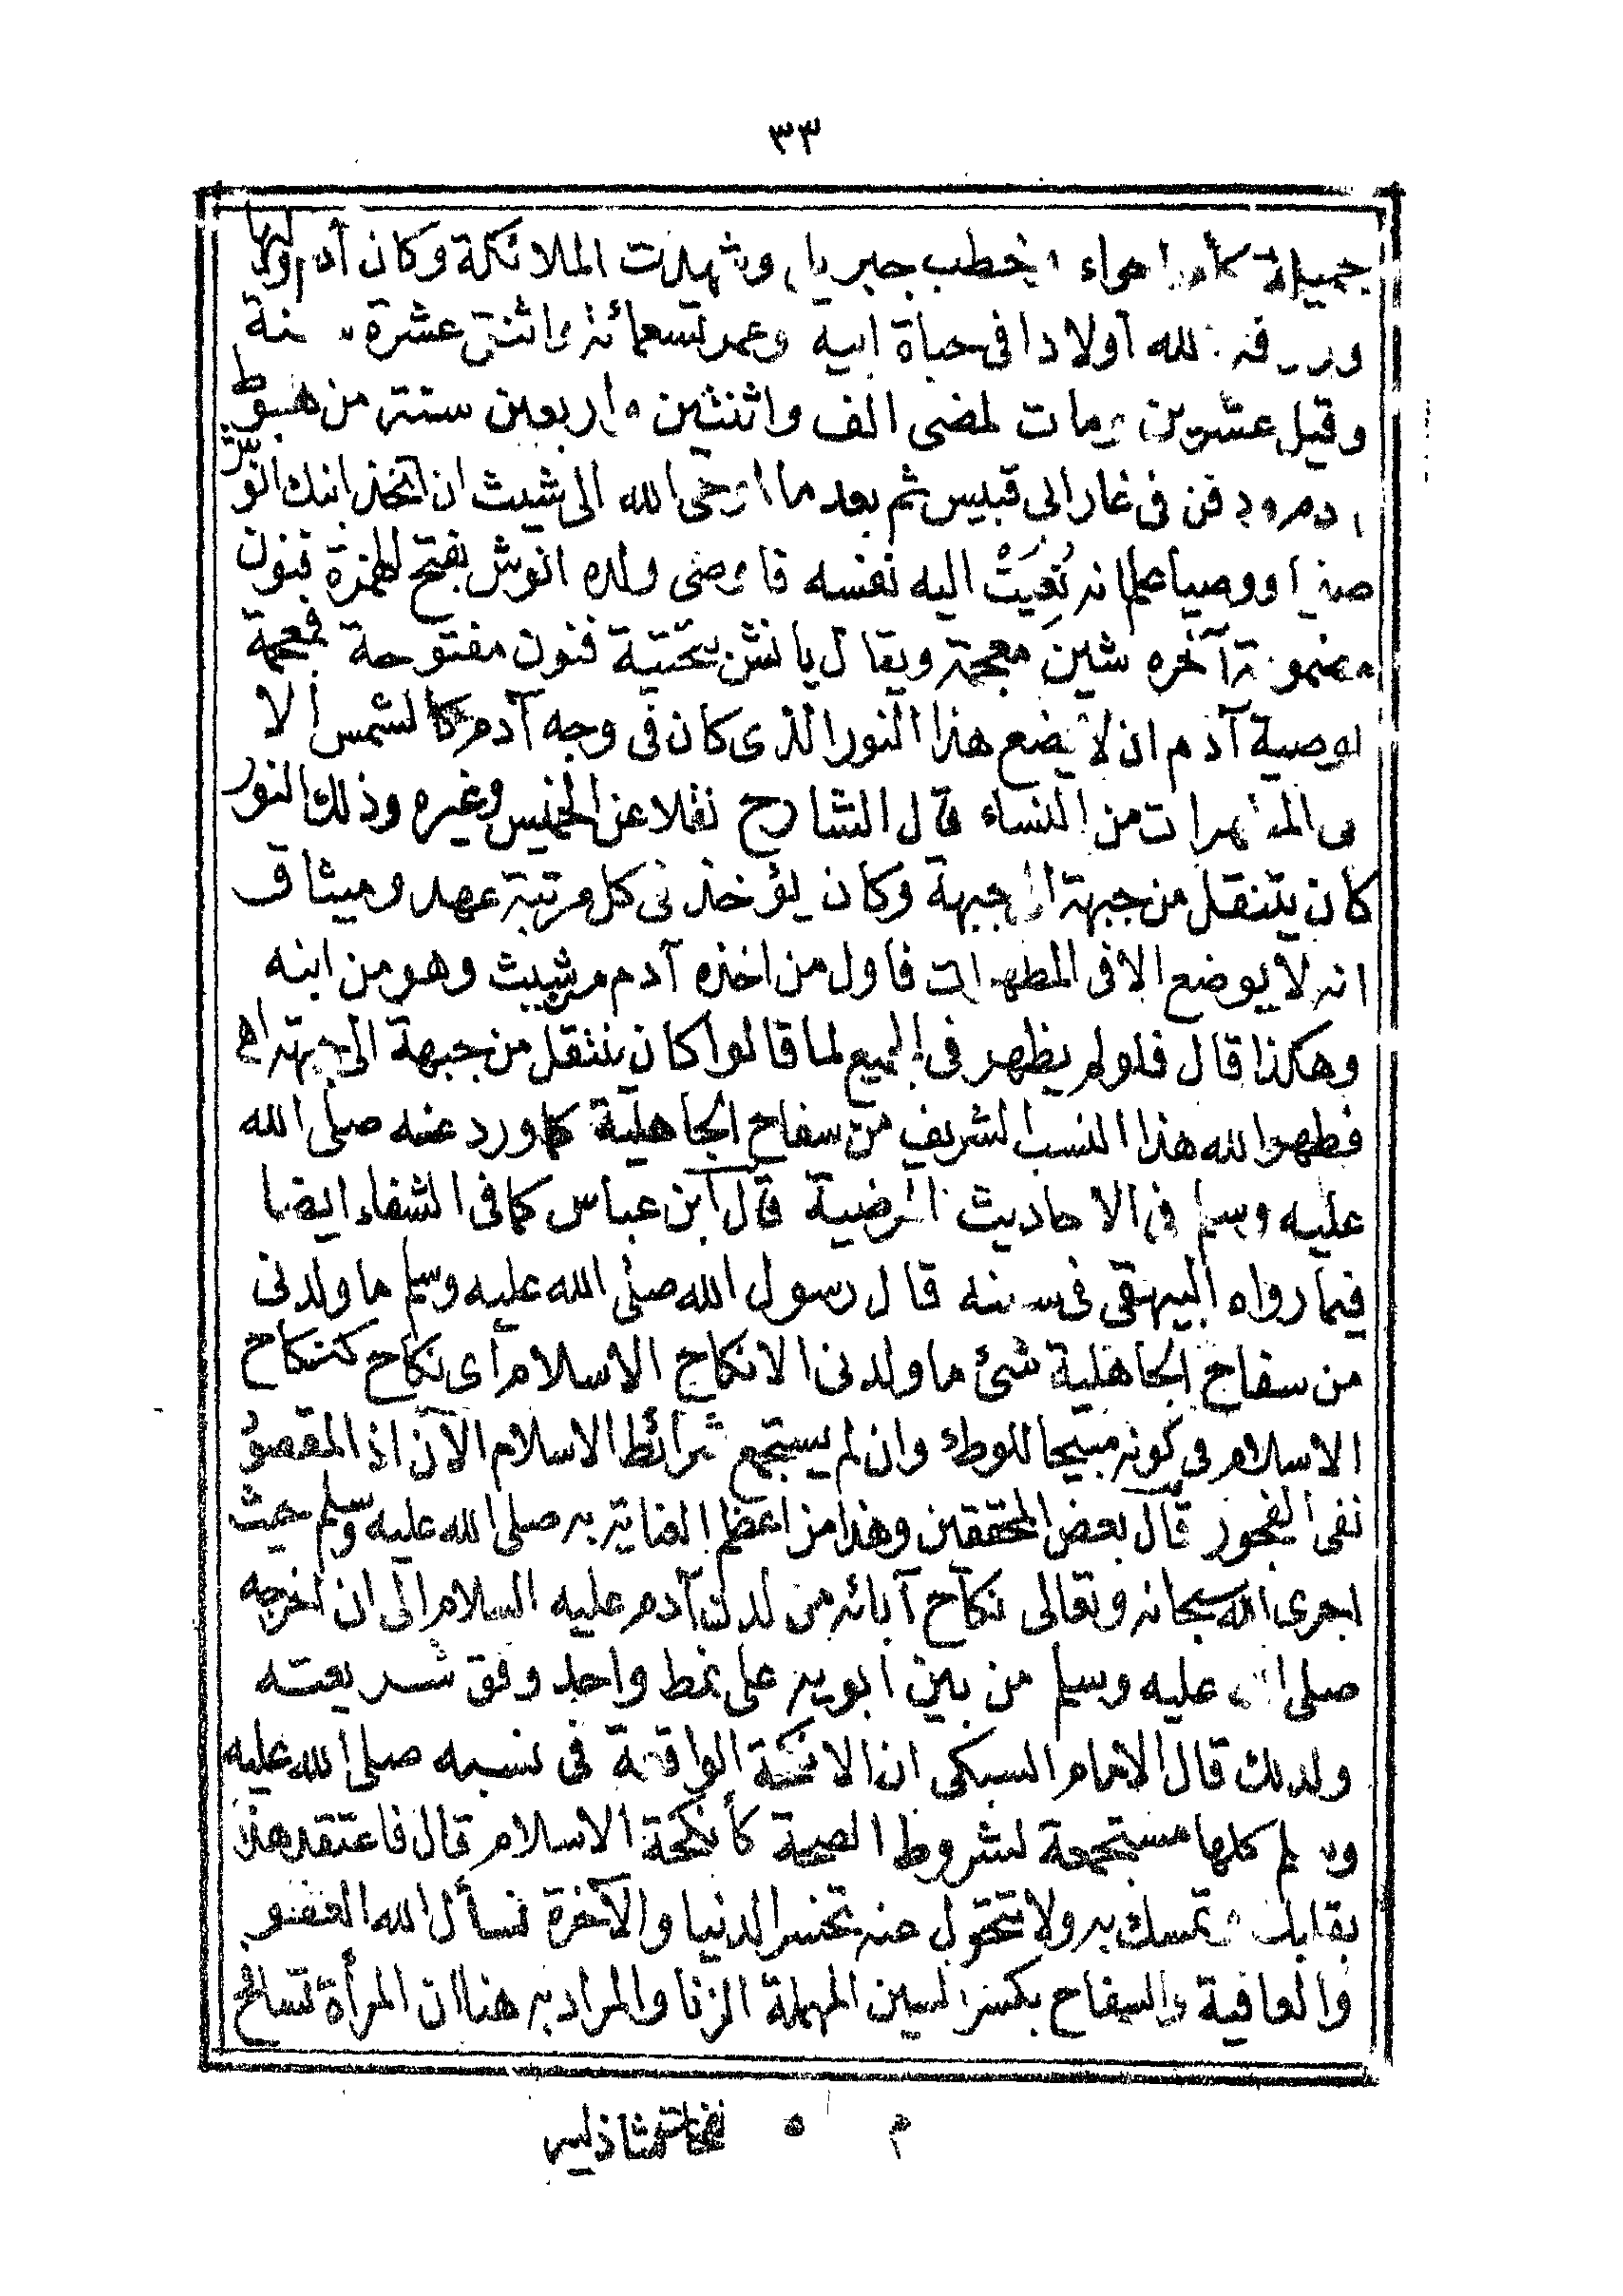 ٣٣
جميلة كأمها حواء وخطب جبريل وشهدت الملائكة وكان آدم وليها
ورزقه الله اولادا فى حياة ابيه وعمر تسعمائة واثنتى عشرة سنة
وقيل عشرين ومات لمضى الف واثنتين واربعين سنة من هبوط
ادم ودفن فى غار ابى قبيس ثم بعد ما اوحى الله الى شيث ان اتخذ ابنك انوش
صفيا ووصيا علم انه نُعِيَتْ اليه نفسه فاوصى ولده انوش بفتح الهمزة فنون
مضمومة آخره شين معجمة ويقال يانش بتحتية فنون مفتوحة فمعجمة
بوصية آدم ان لا يضع هذا النور الذى كان فى وجه آدم كالشمس الا
فى المطهرات من النساء قال الشارح نقلا عن الخميس وغيره وذلك النور
كان ينتقل من جبهة الى جبهة وكان يؤخذ فى كل مرتبة عهد وميثاق
انه لا يوضع الا فى المطهرات فاول من اخذه آدم من شيث وهو من ابنه
وهكذا قال فلو لم يظهر فى الجميع لما قالوا كان ينتقل من جبهة الى جبهة اهـ
فطهر الله هذا النسب الشريف من سفاح الجاهلية كما ورد عنه صلى الله
عليه وسلم فى الاحاديث المرضية قال ابن عباس كما فى الشفاء ايضا
فيما رواه البيهقى فى سننه قال رسول الله صلى الله عليه وسلم ما ولدنى
من سفاح الجاهلية شئ ما ولدنى الا نكاح الاسلام أى نكاح كنكاح
الاسلام فى كونه مبيحا للوطء وان لم يستجمع شرائط الاسلام الآن اذ المقصود
نفى الفجور قال بعض المحققين وهذا من اعظم العناية به صلى الله عليه وسلم حيث
اجرى الله سبحانه وتعالى نكاح آبائه من لدن آدم عليه السلام الى ان اخرجه
صلى الله عليه وسلم من بين ابويه على نمط واحد وفق شريعته
ولذلك قال الامام السبكى ان الانكحة الواقعة فى نسبه صلى الله عليه
وسلم كلها مستجمعة لشروط الصحة كأنكحة الاسلام قال فاعتقد هذا
بقلبك وتمسك به ولا تتحول عنه تخسر الدنيا والآخرة نسأل الله العفو
والعافية والسفاح بكسر السين المهملة الزنا والمراد به هنا ان المرأة تسافح
م ٥ نفحات شاذليه